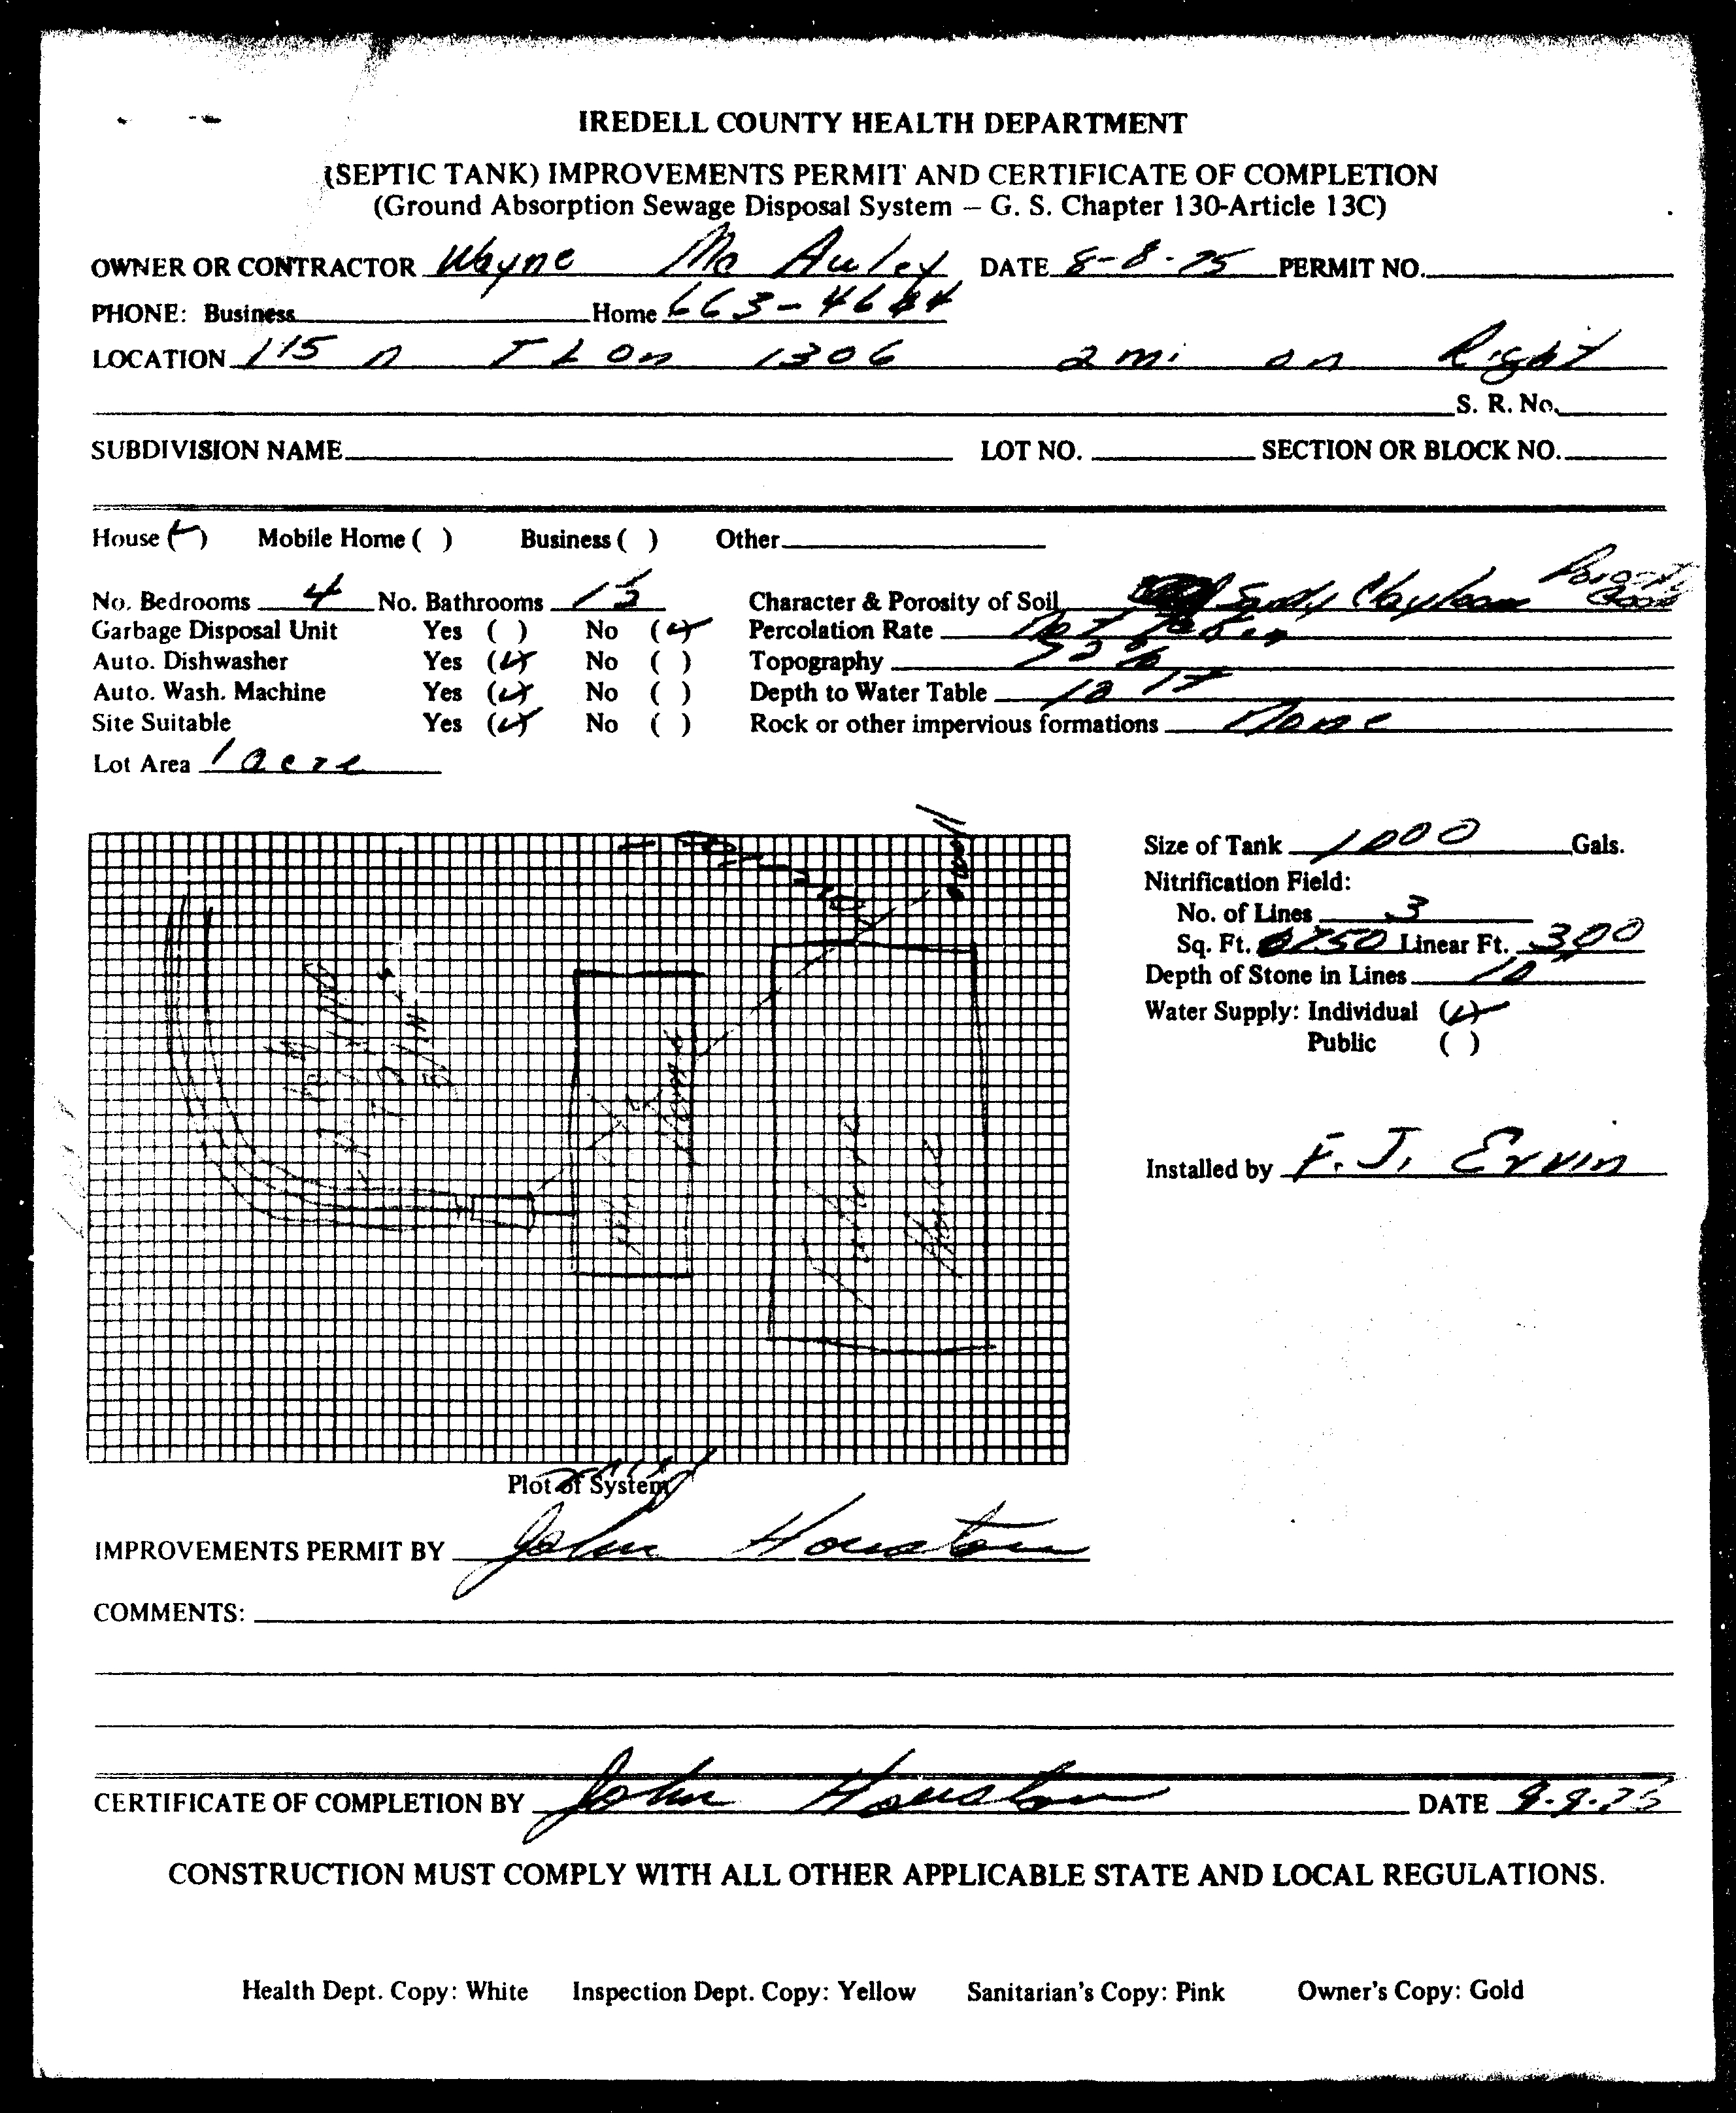 IREDELL COUNTY HEALTH DEPARTMENT
(SEPTIC TANK) IMPROVEMENTS PERMIT AND CERTIFICATE OF COMPLETION
(Ground Absorption Sewage Disposal System – G. S. Chapter 130-Article 13C)
OWNER OR CONTRACTOR Wayne Mc Auley DATE 8-8-75 PERMIT NO.
PHONE: Business Home 663-4644
LOCATION 115 n T L on 1306 2 mi on Right
S. R. No.
SUBDIVISION NAME LOT NO. SECTION OR BLOCK NO.
House ( ) Mobile Home ( ) Business ( ) Other
No. Bedrooms 4 No. Bathrooms 1 5 Character & Porosity of Soil Sandy Clayloam Porosity Good
Garbage Disposal Unit Yes ( ) No ( ) Percolation Rate Not Taken
Auto. Dishwasher Yes ( ) No ( ) Topography
Auto. Wash. Machine Yes ( ) No ( ) Depth to Water Table
Site Suitable Yes ( ) No ( ) Rock or other impervious formations None
Lot Area 1 acre
Well
Size of Tank 1000 Gals.
Nitrification Field:
No. of Lines 3
Sq. Ft. Linear Ft. 300
Depth of Stone in Lines
Water Supply: Individual ( )
Public ( )
Home
House
Installed by F. J. Ervin
Plot of System
IMPROVEMENTS PERMIT BY John Houston
COMMENTS:
CERTIFICATE OF COMPLETION BY John Houston DATE
CONSTRUCTION MUST COMPLY WITH ALL OTHER APPLICABLE STATE AND LOCAL REGULATIONS.
Health Dept. Copy: White Inspection Dept. Copy: Yellow Sanitarian's Copy: Pink Owner's Copy: Gold